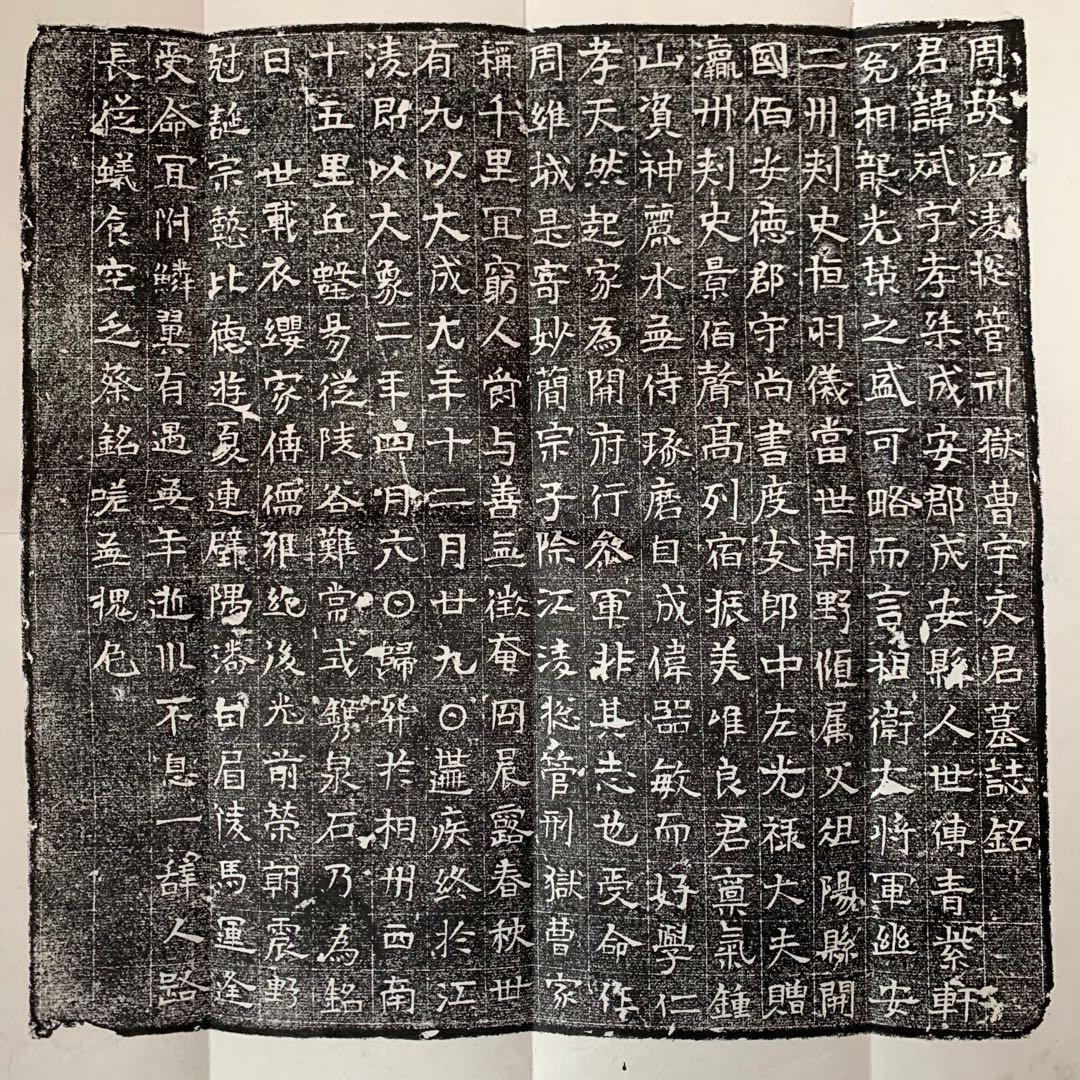 周故江淩揔管刑獄曹宇文君墓誌銘
君諱斌字孝桀成安郡成安縣人世傳青紫軒
冕相襲光榮之盛可略而言祖衛大將軍幽安
二州刺史恒羽儀當世朝野傾属父俎陽縣開
國伯安德郡守尚書度支郎中左光祿大夫贈
瀛州刾史景伯聲髙列宿振美唯良君稟氣鍾
山資神麗水無待琢磨自成偉器敏而好學仁
孝天然起家為開府行叅軍非其志也受命作
周維城是寄妙簡宗子除江淩揔管刑獄曹家
稱千里宜窮人爵与善無徵奄同晨露春秋卌
有九以大成元年十二月廿九日遘疾終於江
淩即以大象二年四月六日歸窆於相州西南
十五里丘壑易從陵谷難常式鐫泉石乃為銘
曰 世載衣纓家傳禮雅絶後光前榮朝震野
尅誕宗懿比德遊夏連璧隅潘曰眉陵馬運逢
受命宜附鱗翼有遇無年逝川不息一辭人路
長從蟻食空乏蔡銘嗟無愧色